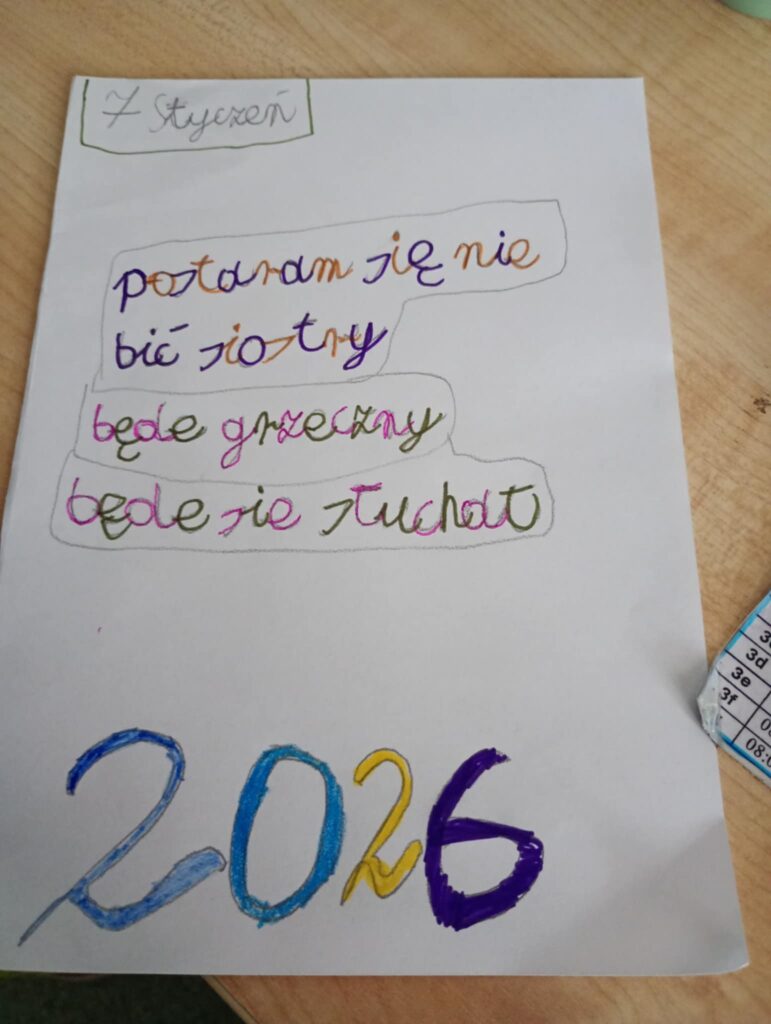 7 Styczeń
postaram się nie
bić siostry
będe grzeczny
będe sie słuchał
2026
3d
3e
3f